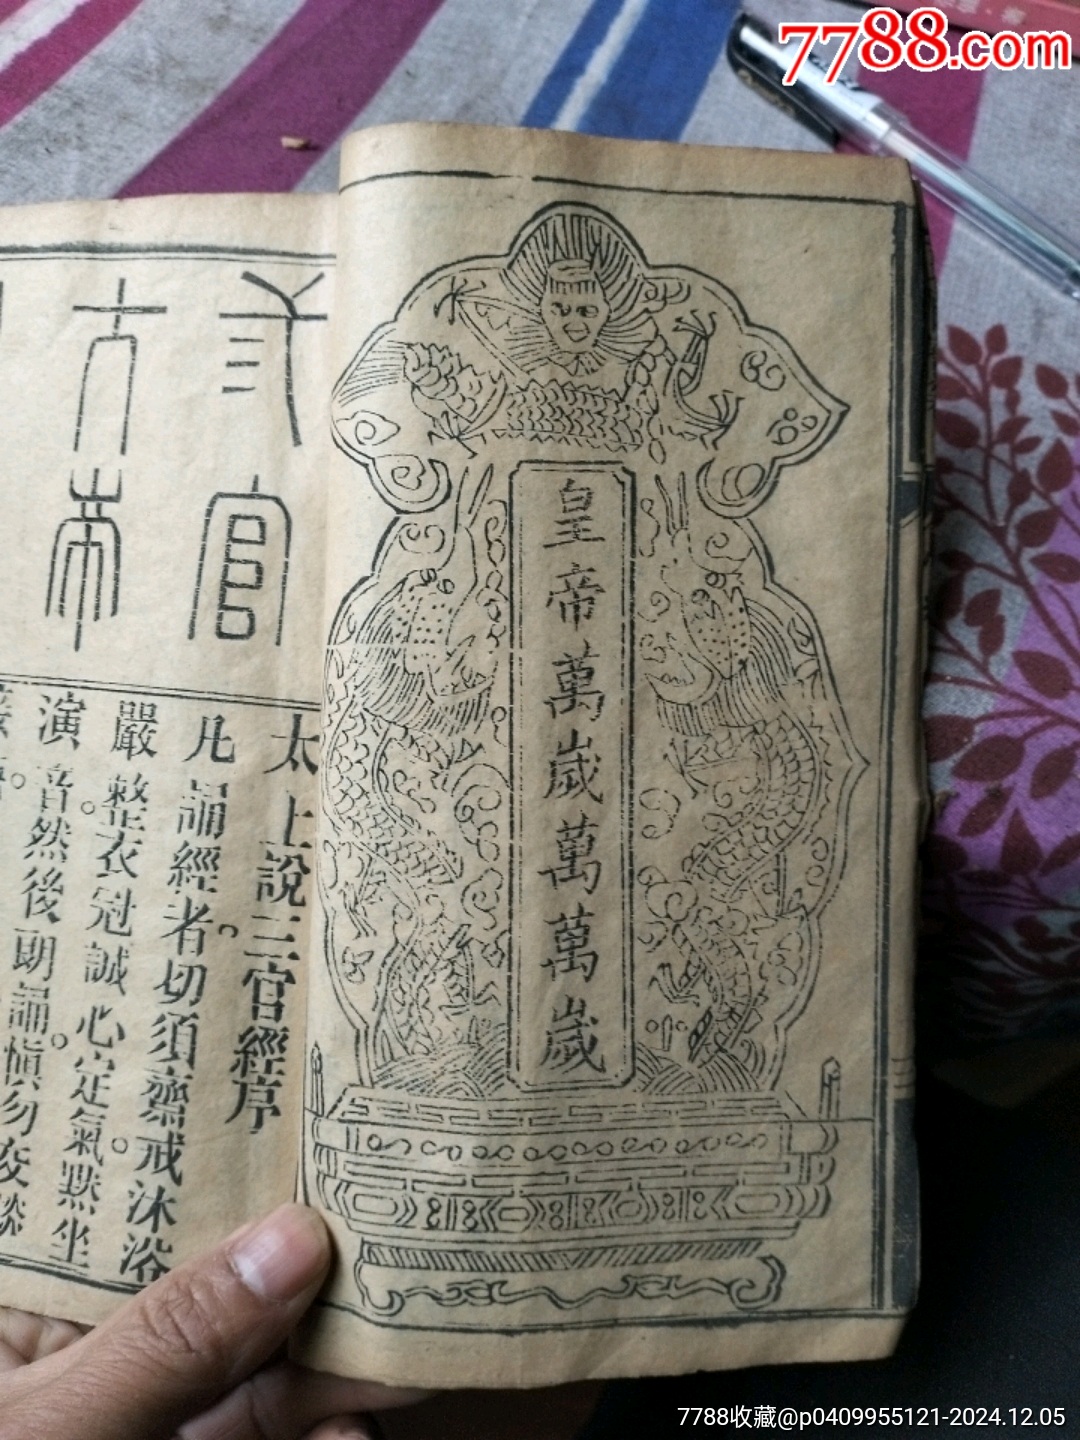 7788.com
皇帝萬歲萬萬歲
官
大帝
太上說三官經序
凡誦經者切須齋戒沐浴
嚴整衣冠誠心定氣默坐
演音然後朗誦慎勿交談
7788收藏@p0409955121-2024.12.05